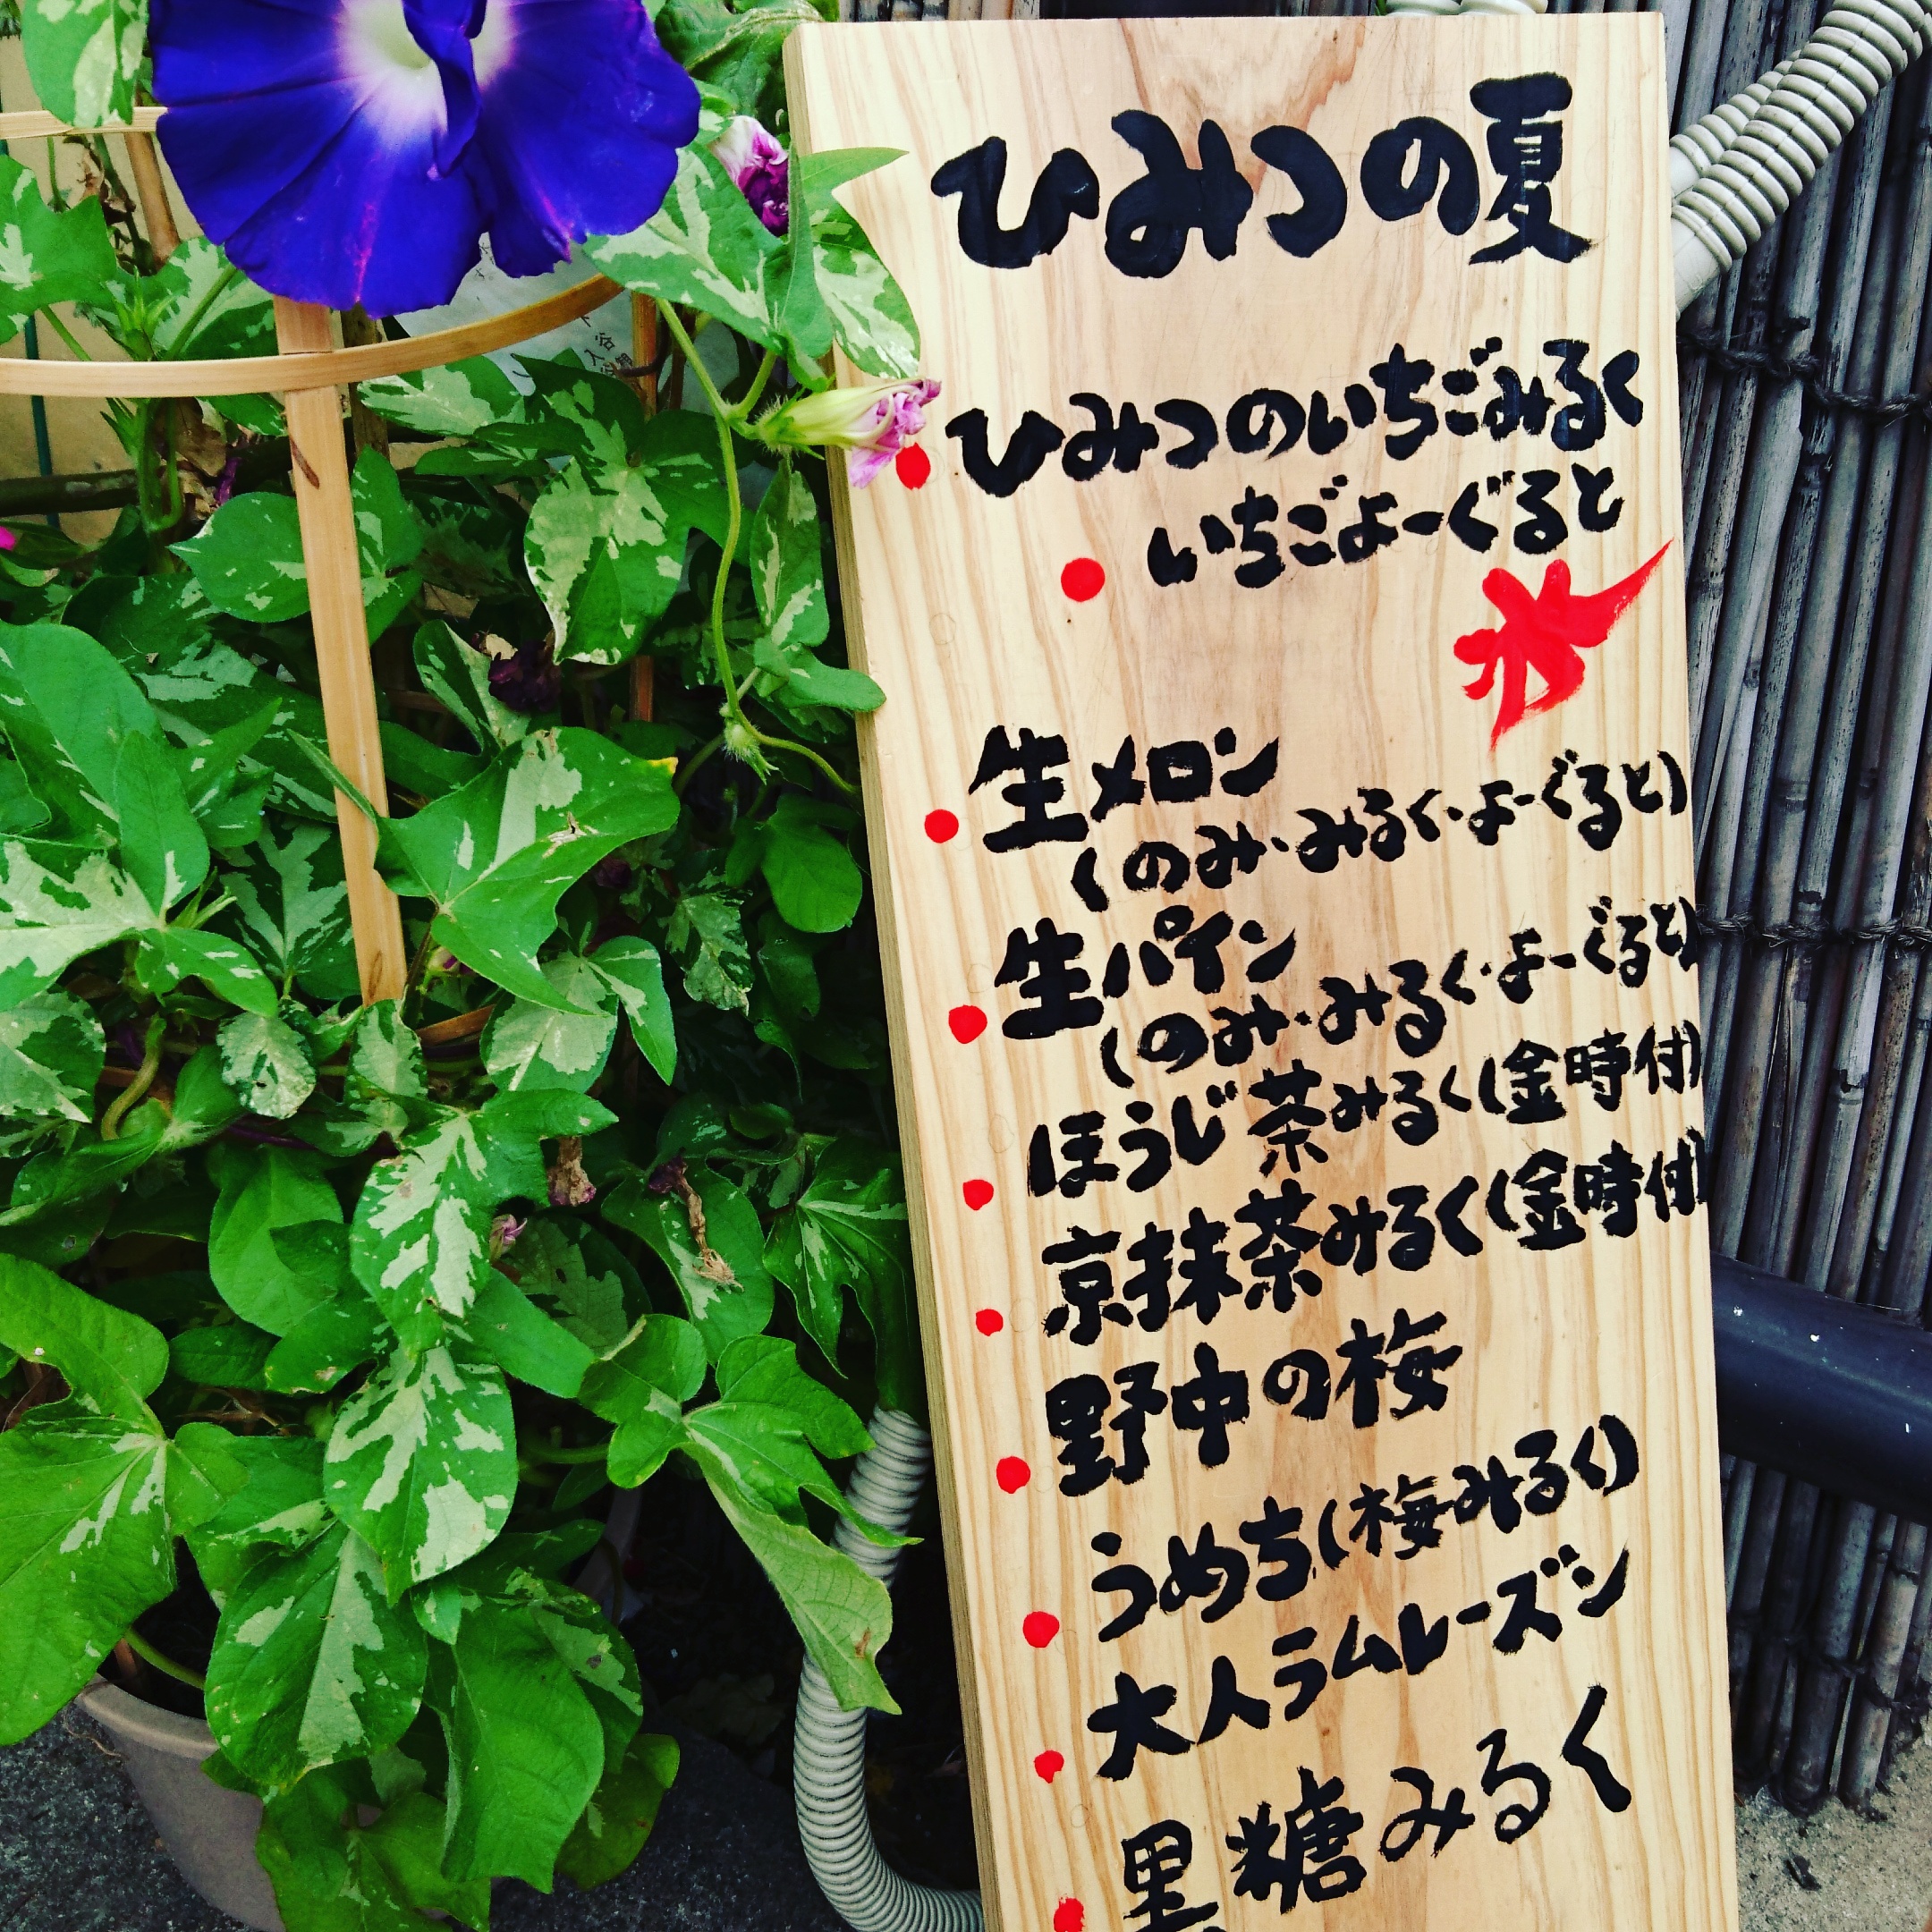 ひみつの夏
ひみつのいちごみるく
いちごよーぐると
氷
生メロン
(のみ・みるく・よーぐると)
生パイン
(のみ・みるく・よーぐると)
ほうじ茶みるく(金時付)
京抹茶みるく(金時付)
野中の梅
うめち(梅みるく)
大人ラムレーズン
黒糖みるく